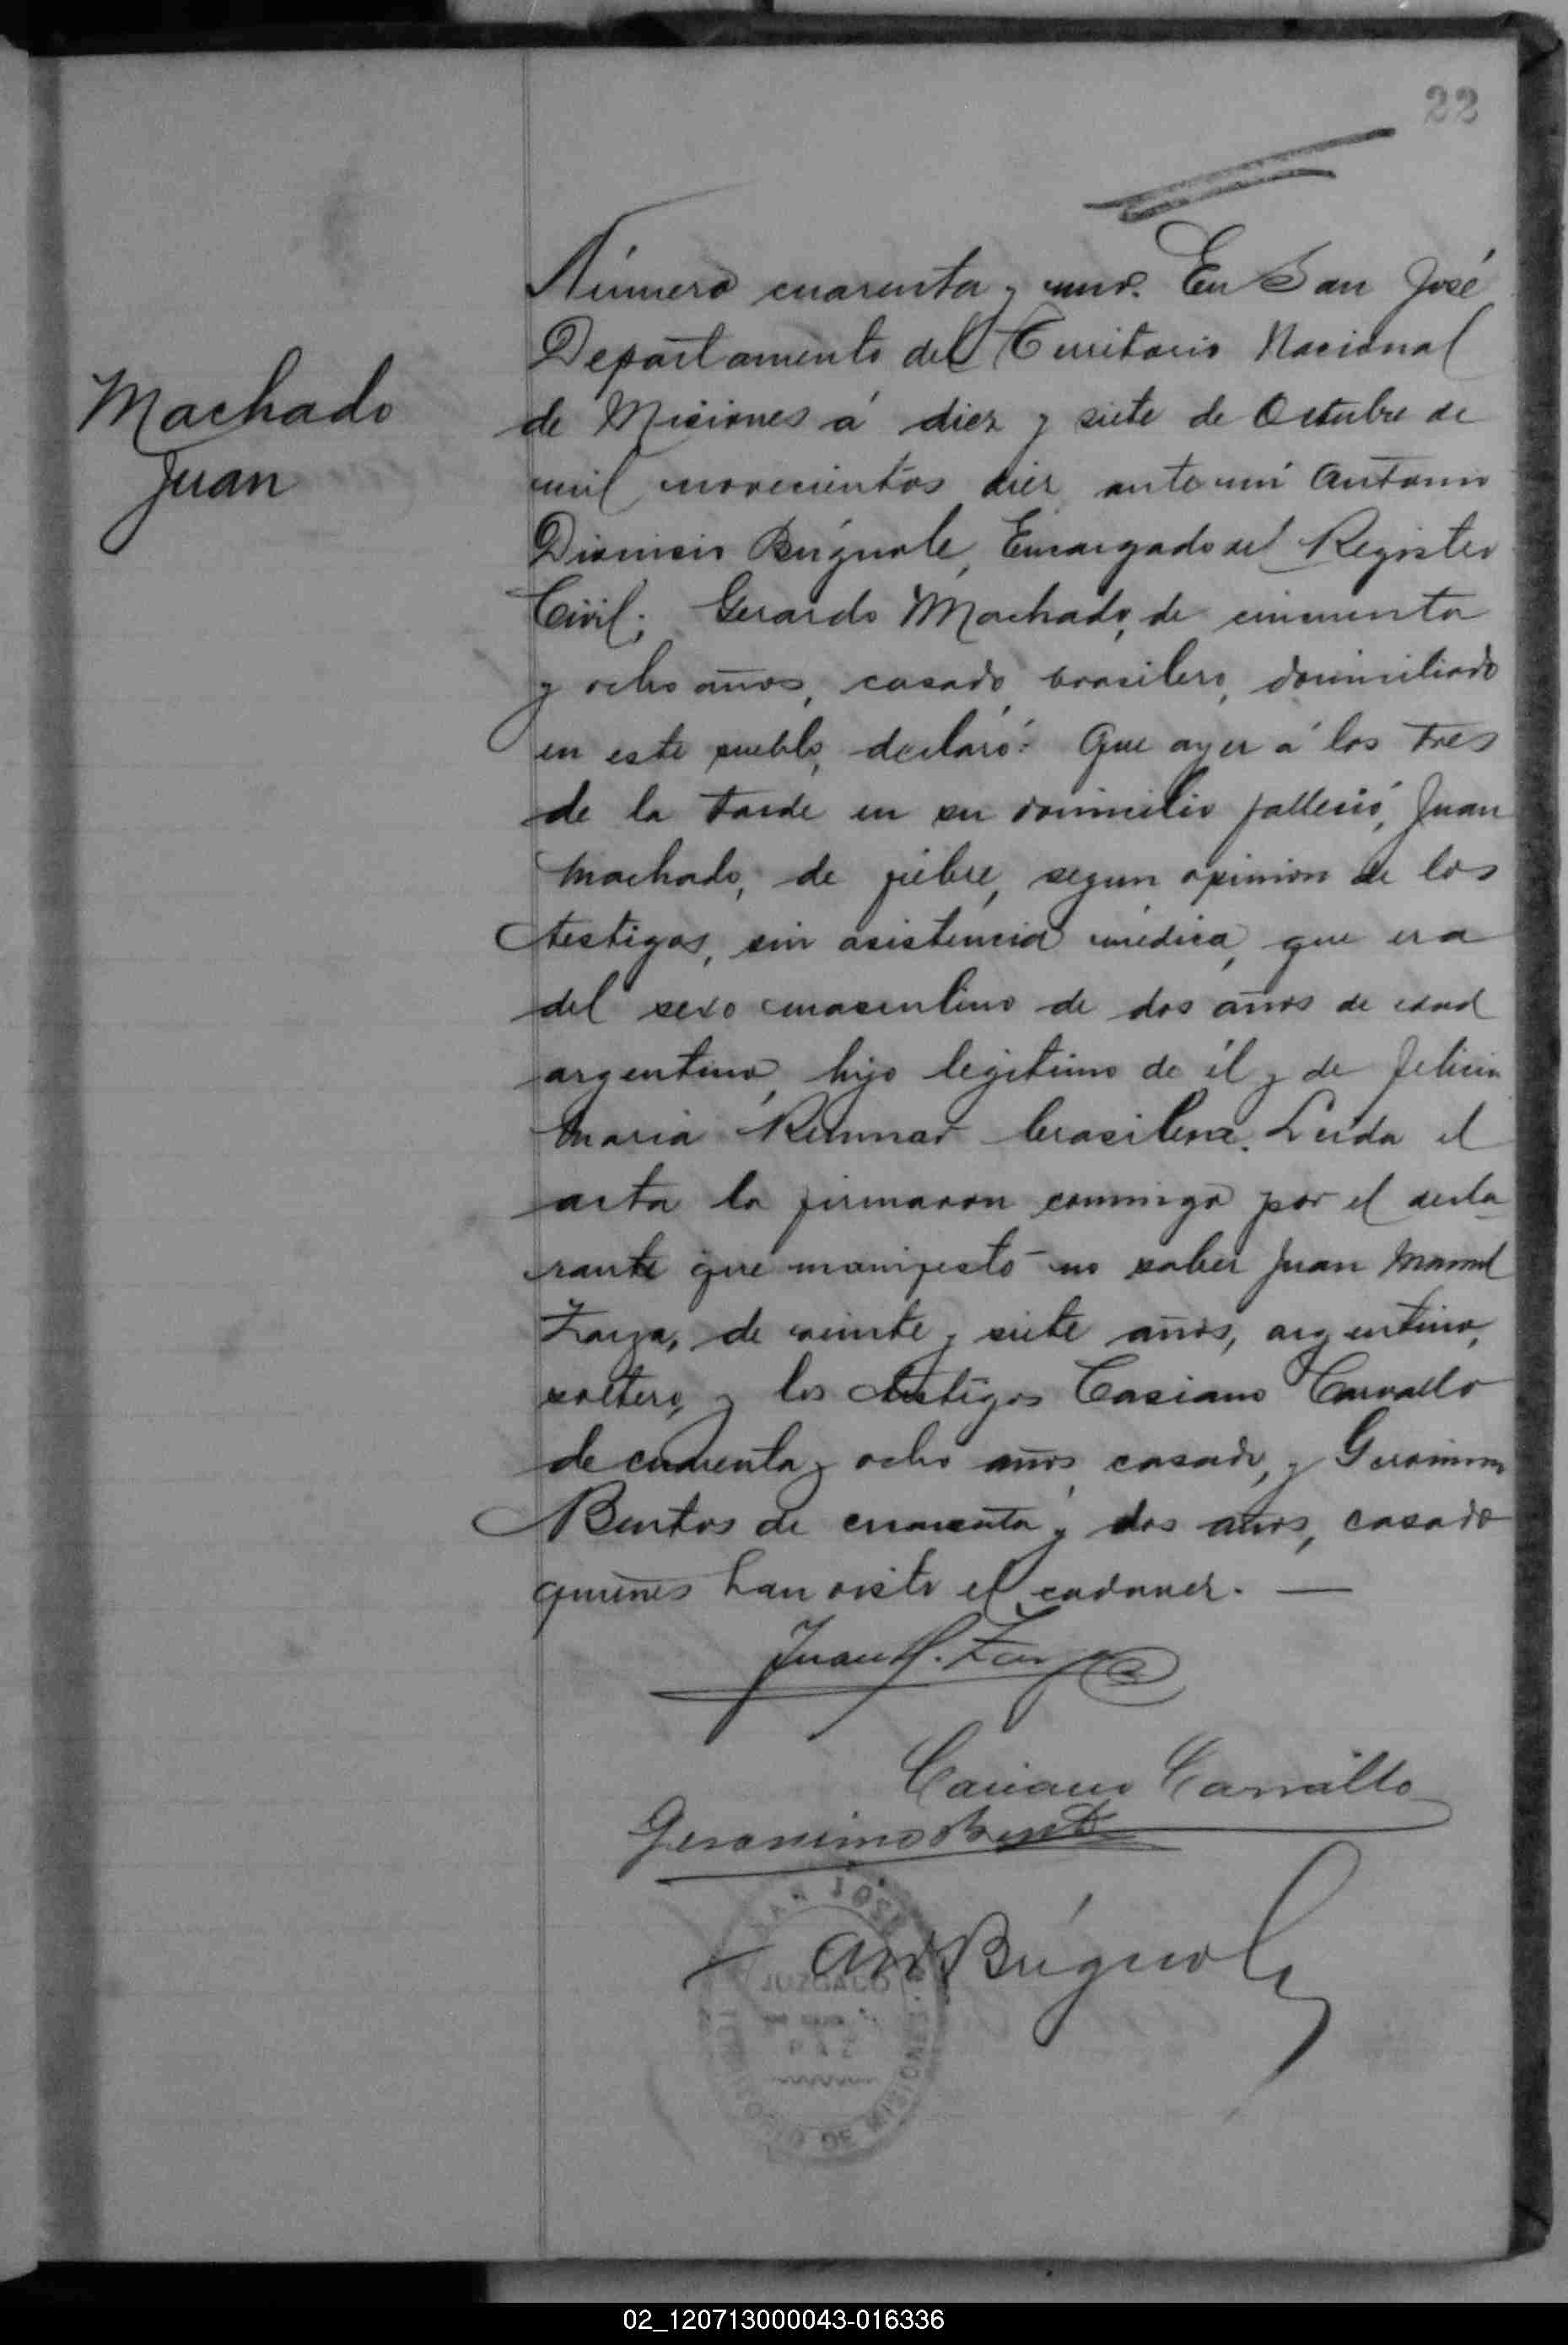 22
Machado
Juan
Número cuarenta y uno. En San José
Departamento del Territorio Nacional
de Misiones á diez y siete de Octubre de
mil novecientos diez ante mi Antonio
Dionicio Búgnole, Encargado del Registro
Civil; Gerardo Machado, de cincuenta
y ocho años, casado, brasilero, domiciliado
en este pueblo, declaró: Que ayer á las tres
de la tarde en su domicilio falleció, Juan
Machado, de fiebre, segun opinion de los
testigos, sin asistencia médica, que era
del sexo masculino de dos años de edad
argentino, hijo legitimo de él y de Felicia
Maria brasilera. Leida el
acta la firmaron conmigo por el decla
rante que manifestó no saber Juan Manuel
de veinte y siete años, argentino,
soltero, y los testigos Casiano Carvallo
de cuarenta y ocho años, casado, y Geronimo
Bentos de cuarenta y dos años, casado
quienes han visto el cadaver. —
Juan M.
Casiano Carvallo
Geronimo Bento
Ant Búgnole
SAN JOSE
JUZGADO
DE
PAZ
TERRITORIO DE MISIONES
02_120713000043-016336